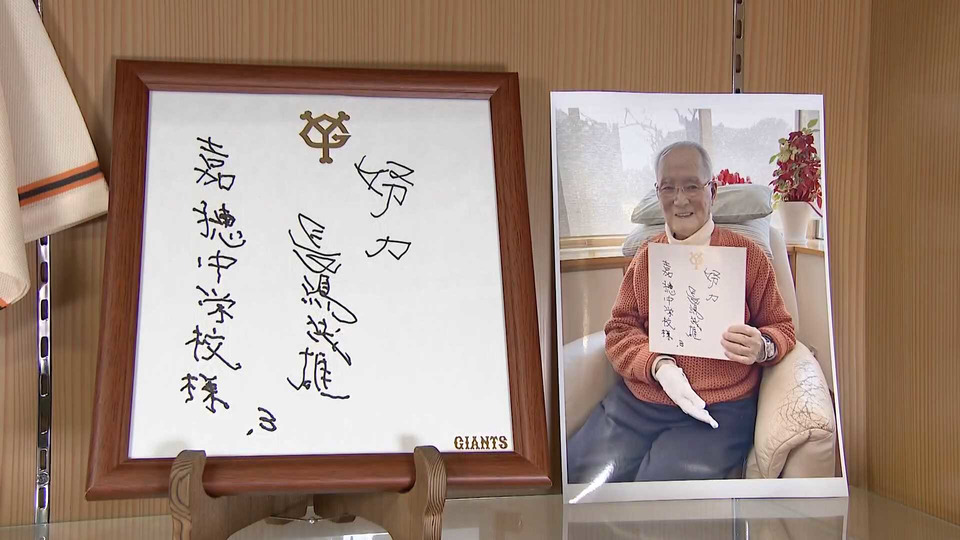 努力
長嶋茂雄
3
嘉穂中学校様
YG
GIANTS
努力
長嶋茂雄
3
嘉穂中学校様